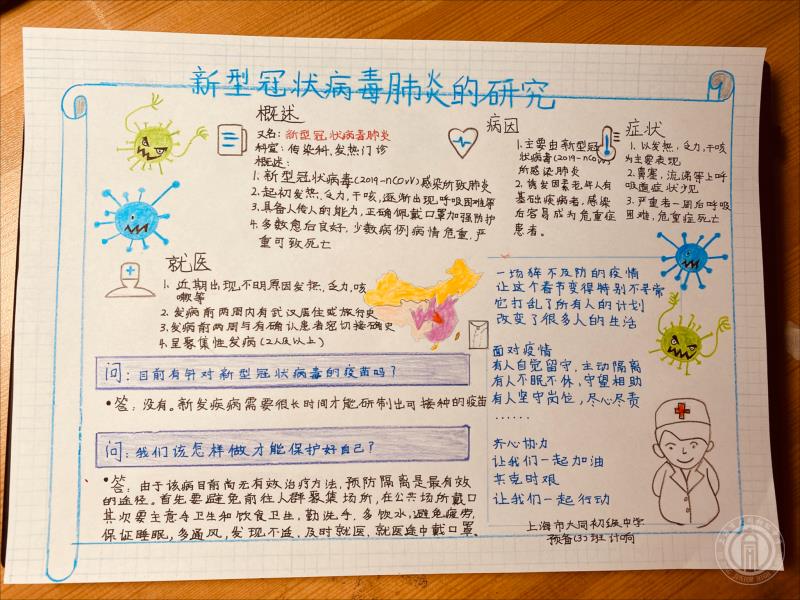 新型冠状病毒肺炎的研究
概述
又名：新型冠状病毒肺炎
科室：传染科、发热门诊
概述：
1. 新型冠状病毒（2019-nCoV）感染所致肺炎
2. 起初发热，乏力，干咳，逐渐出现呼吸困难等
3. 具备人传人的能力，正确佩戴口罩加强防护
4. 多数愈后良好，少数病例病情危重，严
重可致死亡
病因
1. 主要由新型冠
状病毒（2019-nCoV）
所感染肺炎
2. 诱发因素老年人有
基础疾病者，感染
后容易成为危重症
患者。
症状
1. 以发热，乏力，干咳
为主要表现
2. 鼻塞，流涕等上呼
吸道症状少见
3. 严重者一周后呼吸
困难，危重症死亡
就医
1. 近期出现不明原因发热，乏力，咳
嗽等
2. 发病前两周内有武汉居住或旅行史
3. 发病前两周与有确认患者密切接触史
4. 呈聚集性发病（2人及以上）
问：目前有针对新型冠状病毒的疫苗吗？
•答：没有。新发疾病需要很长时间才能研制出可接种的疫苗
问：我们该怎样做才能保护好自己？
•答：由于该病目前尚无有效治疗方法，预防隔离是最有效
的途径。首先要避免前往人群聚集场所，在公共场所戴口
其次要注意手卫生和饮食卫生，勤洗手，多饮水，避免疲劳，
保证睡眠，多通风，发现不适，及时就医，就医途中戴口罩。
一场猝不及防的疫情
让这个春节变得特别不寻常
它打乱了所有人的计划
改变了很多人的生活
面对疫情
有人自觉留守，主动隔离
有人不眠不休，守望相助
有人坚守岗位，尽心尽责
......
齐心协力
让我们一起加油
共克时艰
让我们一起行动
上海市大同初级中学
预备(3)班 计响